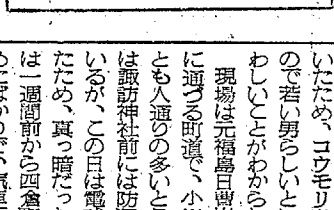 いたため、コウモリ
ので若い男らしいと
わしいことがわから
現場は元福島日曹
に通づる町道で、小
とも人通りの多いと
は諏訪神社前には防
いるが、この日は電
たため、真っ暗だっ
は一週間前から四倉